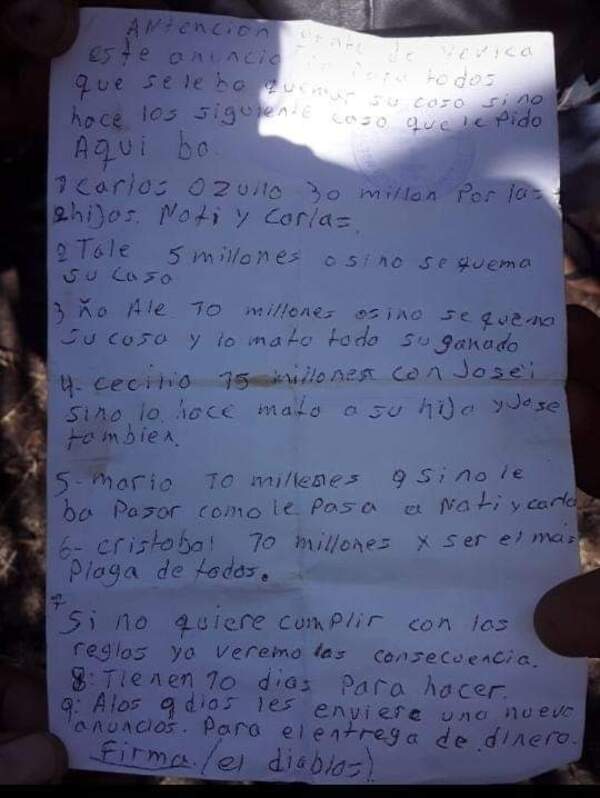 Antencion Gente de
este anuncio es para todos
que se le ba quemar su casa sino
hace los siguiente caso que le pido
Aqui ba.
1 carlos Ozuno 30 millon Por las
2 hijas. Nati y Carlas.
2 Tale 5 millones o sino se quema
su casa
3 ño Ale 10 millones osino se quema
su casa y lo mato todo su ganado
4- cecilio 15 millones con Jose i
sino lo hace mato a su hija y Jose
tambien.
5- mario 10 millones o si no le
ba Pasar como le Pasa a Nati y carla
6- cristobal 10 millones x ser el mas
Plaga de todos.
7
Si no quiere cumplir con las
reglas ya veremo las consecuencia.
8: Tienen 10 dias Para hacer.
9: Alos 9 dias les enviere una nueva
anuncios. Para el entrega de dinero.
Firma. (el diablos)